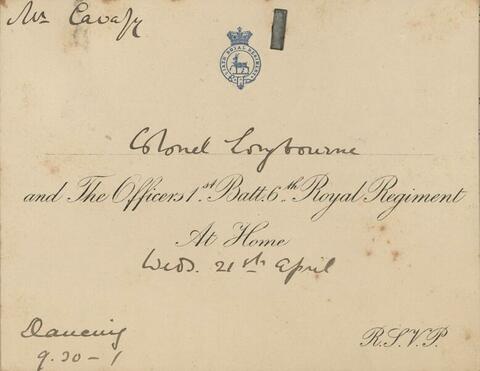 Mr Cavafy
Colonel
and The Officers 1st. Batt. 6th. Royal Regiment
At Home
Weds. 21st April
Dancing
9.30-1
R.S.V.P.